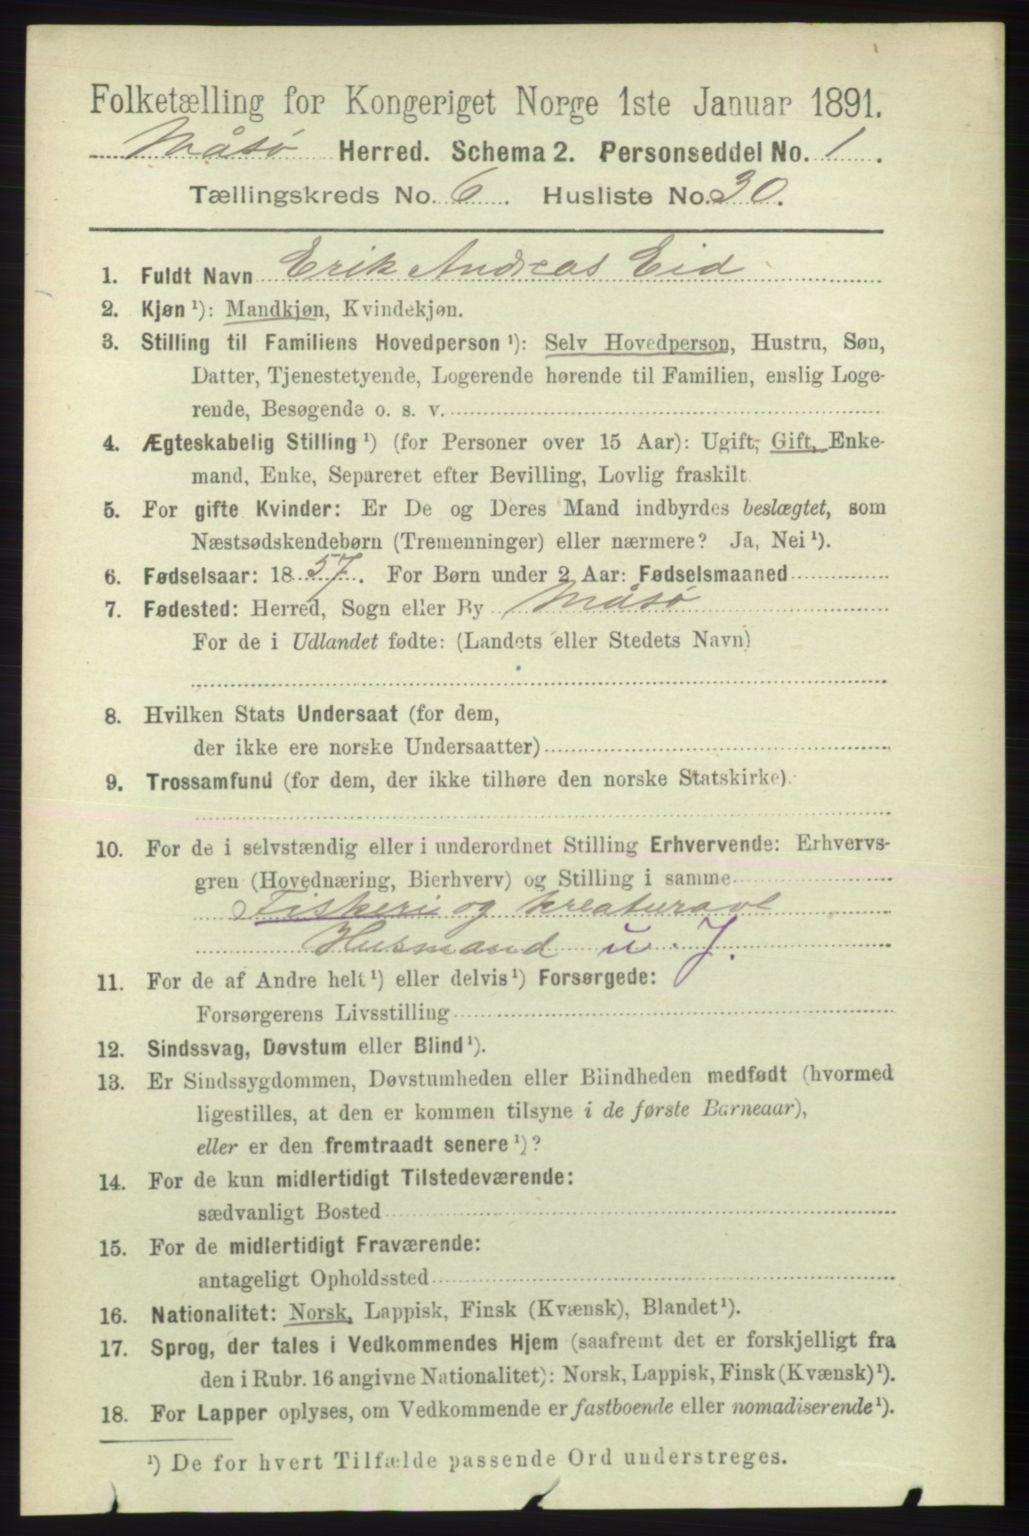 Folketælling for Kongeriget Norge 1ste Januar 1891.
Måsö Herred. Schema 2. Personseddel No. 1.
Tællingskreds No. 6. Husliste No. 30.
1. Fuldt Navn Erik Andreas Eid
2. Kjøn ¹): Mandkjøn, Kvindekjøn.
3. Stilling til Familiens Hovedperson ¹): Selv Hovedperson, Hustru, Søn,
Datter, Tjenestetyende, Logerende hørende til Familien, enslig Loge-
rende, Besøgende o. s. v.
4. Ægteskabelig Stilling ¹) (for Personer over 15 Aar): Ugift, Gift, Enke-
mand, Enke, Separeret efter Bevilling, Lovlig fraskilt
5. For gifte Kvinder: Er De og Deres Mand indbyrdes beslægtet, som
Næstsødskendebørn (Tremenninger) eller nærmere? Ja, Nei ¹).
6. Fødselsaar: 1857. For Børn under 2 Aar: Fødselsmaaned
7. Fødested: Herred, Sogn eller By Måsö
For de i Udlandet fødte: (Landets eller Stedets Navn)
8. Hvilken Stats Undersaat (for dem,
der ikke ere norske Undersaatter)
9. Trossamfund (for dem, der ikke tilhøre den norske Statskirke).
10. For de i selvstændig eller i underordnet Stilling Erhvervende: Erhvervs-
gren (Hovednæring, Bierhverv) og Stilling i samme
Fiskeri og kreaturavl
Husmand u. J.
11. For de af Andre helt ¹) eller delvis ¹) Forsørgede:
Forsørgerens Livsstilling
12. Sindssvag, Døvstum eller Blind ¹).
13. Er Sindssygdommen, Døvstumheden eller Blindheden medfødt (hvormed
ligestilles, at den er kommen tilsyne i de første Barneaar),
eller er den fremtraadt senere ¹)?
14. For de kun midlertidigt Tilstedeværende:
sædvanligt Bosted
15. For de midlertidigt Fraværende:
antageligt Opholdssted
16. Nationalitet: Norsk, Lappisk, Finsk (Kvænsk), Blandet ¹).
17. Sprog, der tales i Vedkommendes Hjem (saafremt det er forskjelligt fra
den i Rubr. 16 angivne Nationalitet): Norsk, Lappisk, Finsk (Kvænsk) ¹).
18. For Lapper oplyses, om Vedkommende er fastboende eller nomadiserende ¹).
¹) De for hvert Tilfælde passende Ord understreges.